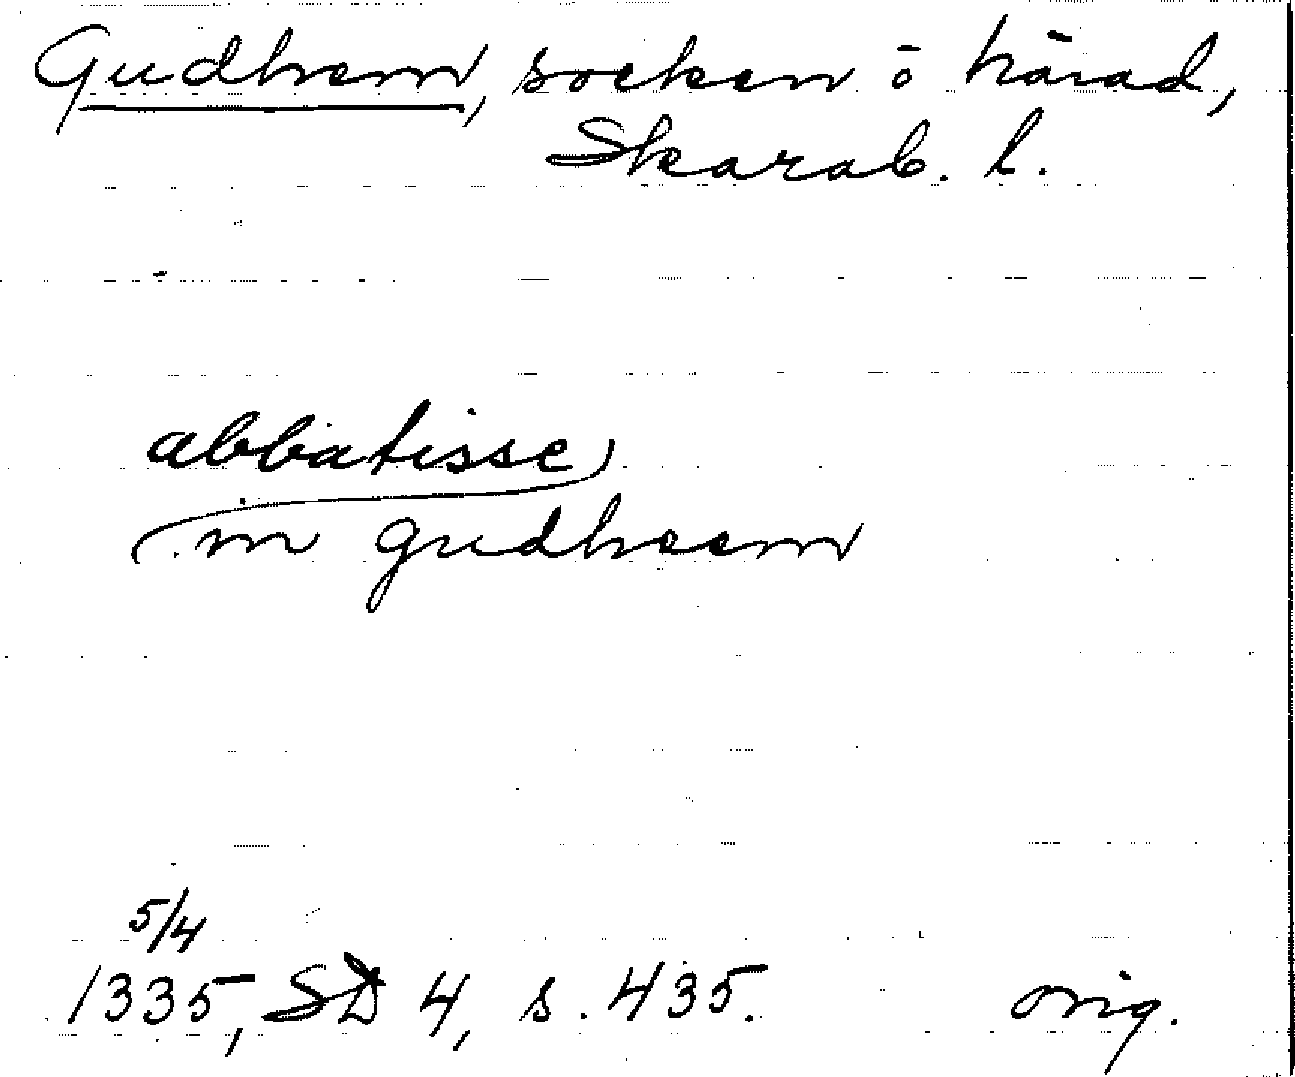 Gudhem, socken o härad,
Skarab. l.
abbatisse
in gudheem
5/4
1335, SD 4, s. 435. orig.